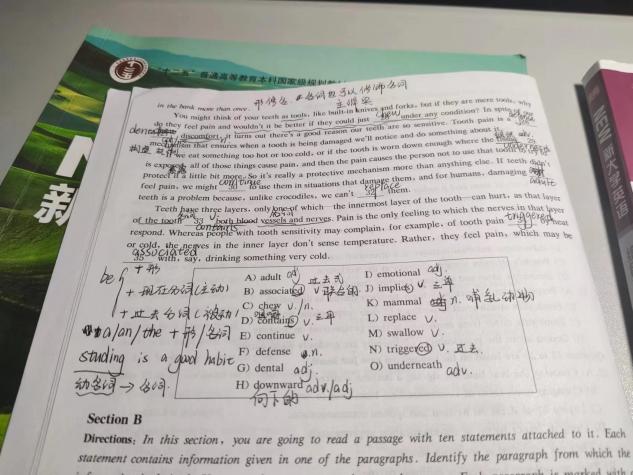 "十二五"普通高等教育本科国家级规划
新
形修名. 名词也可以修饰名词
in the bank more than once.
主谓宾
You might think of your teeth as tools, like built-in knives and forks, but if they are mere tools, why
do they feel pain and wouldn't it be better if they could just chew under any condition? In spite of
discomfort, it turns out there's a good reason our teeth are so sensitive. Tooth pain is a
mechanism that ensures when a tooth is being damaged we'll notice and do something about it.
If we eat something too hot or too cold, or if the tooth is worn down enough where the
is exposed, all of those things cause pain, and then the pain causes the person not to use that tooth
protect it a little bit more. So it's really a protective mechanism more than anything else. If teeth didn't
feel pain, we might continue to use them in situations that damage them, and for humans, damaging adult
teeth is a problem because, unlike crocodiles, we can't replace them.
Teeth have three layers, only one of which—the innermost layer of the tooth—can hurt, as that layer
of the tooth contains both blood vessels and nerves. Pain is the only feeling to which the nerves in that layer
respond. Whereas people with tooth sensitivity may complain, for example, of tooth pain triggered heat
or cold, the nerves in the inner layer don't sense temperature. Rather, they feel pain, which may be
associated with, say, drinking something very cold.
be + 形
+ 现在分词(主动)
+ 过去分词(被动)
a/an/the + 形/名词
studing is a good habit
动名词 → 名词.
A) adult adj
B) associated v 过去式
C) chew v./n.
D) contains v. 三单
E) continue v.
F) defense n.
G) dental adj.
H) downward adv/adj
向下的
I) emotional adj.
J) implies v. 三单
K) mammal n. 哺乳动物
L) replace v.
M) swallow v.
N) triggered v. 过去
O) underneath adv.
Section B
Directions: In this section, you are going to read a passage with ten statements attached to it. Each
statement contains information given in one of the paragraphs. Identify the paragraph from which the